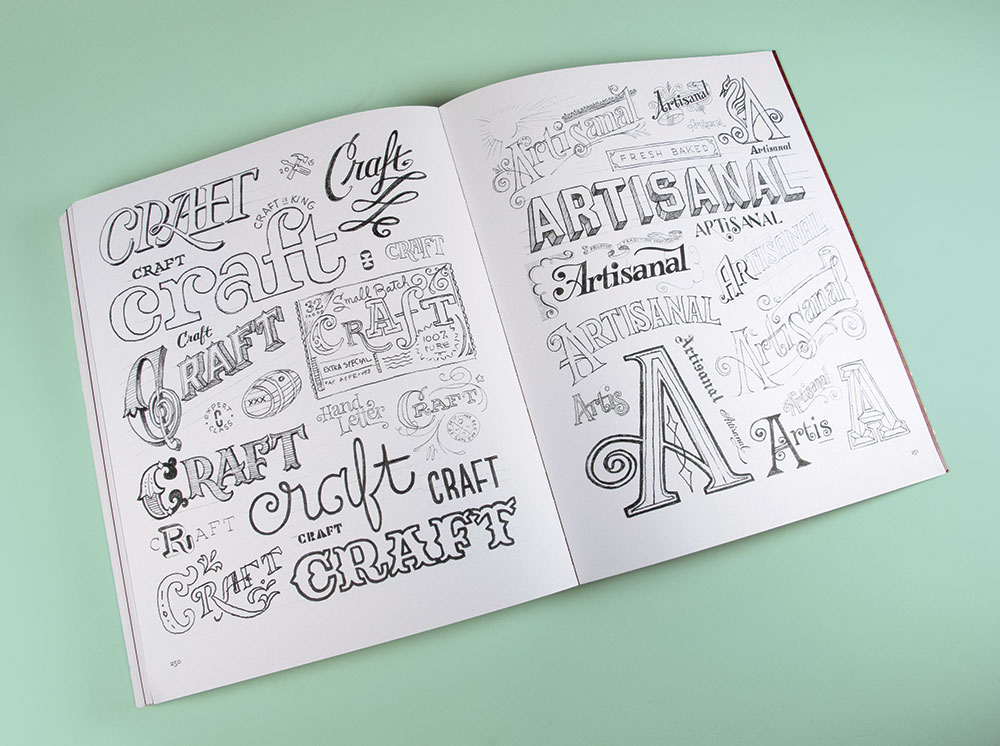 CRAFT
2015
Craft
CRAFT IS KING
CRAFT
craft
CRAFT
Craft
CRAFT
32
Small Batch
CRAFT
100%
PURE
EXTRA SPECIAL
XXX
EXPERT
C
CLASS
Hand
Letter
CRAFT
CRAFT
craft
CRAFT
CRAFT
CRAFT
CRAFT
CRAFT
250
Artisanal
Artisanal
A
Artisanal
FRESH BAKED
ARTISANAL
ARTISANAL
Artisanal
ARTISANAL
ARTISANAL
Artisanal
Artisanal
Artis
A
Artisanal
Artis
Artisanal
A
251